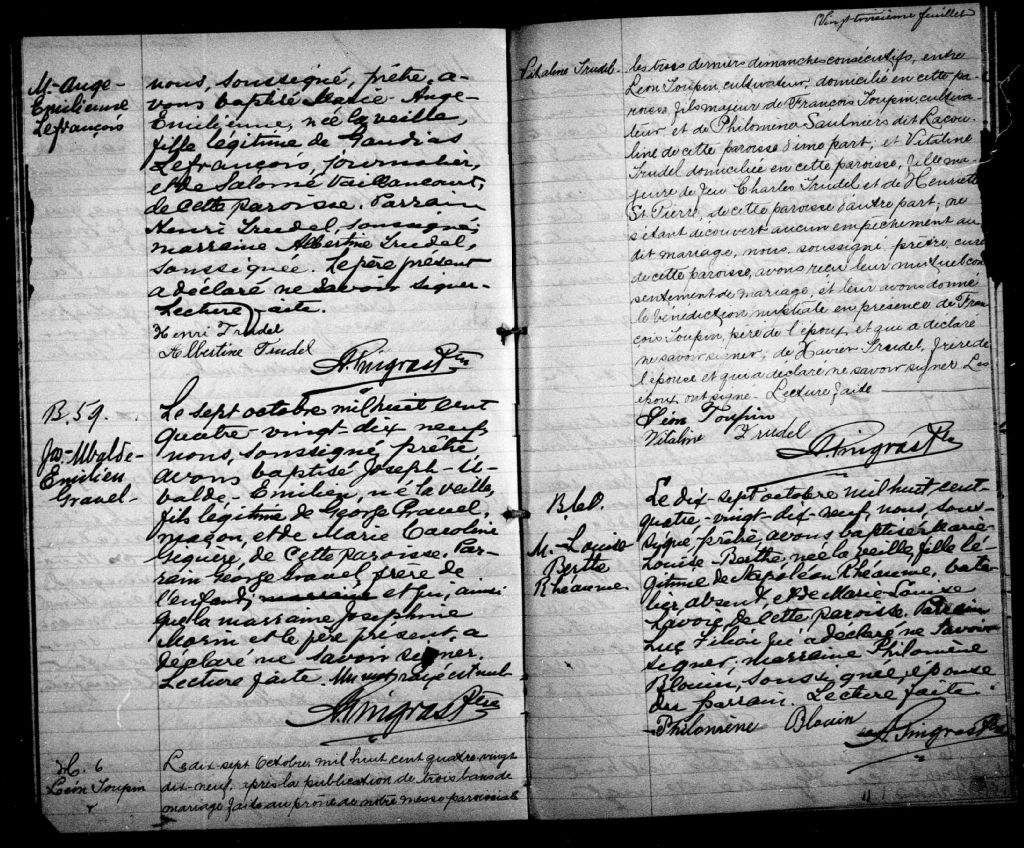 M- Ange-
Emilienne
Lefrançois
nous, soussigné, prêtre, a-
vons baptisé Marie Ange-
Emilienne, née la veille,
fille légitime de Gaudias
Lefrançois, journalier,
et de Salomé Vaillancourt,
de cette paroisse. Parrain
Henri Trudel, soussigné;
marraine Albertine Trudel,
soussignée. Le père présent
a déclaré ne savoir signer.
Lecture faite.
Henri Trudel
Albertine Trudel
A. Gingras Ptre
B. 59.
Jos-Ubalde-
Emilien
Gravel-
Le sept octobre mil huit cent
quatre-vingt-dix neuf
nous, soussigné, prêtre
avons baptisé Joseph-U-
balde-Emilien, né la veille,
fils légitime de George Gravel,
maçon, et de Marie Caroline
Giguère, de cette paroisse. Par-
rain George Gravel, frère de
l'enfant, marraine et qui, ainsi
que la marraine Josephine
Morin et le père présent, a
déclaré ne savoir signer.
Lecture faite. Un mot rayé est nul-
A. Gingras Ptre
M. 6
Léon Toupin
Le dix-sept Octobre, mil huit cent quatre-vingt
dix-neuf, après la publication de trois bans de
mariage faite au prône de notre messe paroissiale
Vingt troisième feuillet
Vitaline Trudel-
les trois derniers dimanches consécutifs, entre
Léon Toupin, cultivateur, domicilié en cette pa-
roisse, fils majeur de François Toupin, cultiva-
teur et de Philomine Saulniers dit Lacou-
line de cette paroisse d'une part; et Vitaline
Trudel domiciliée en cette paroisse, fille ma-
jeure de feu Charles Trudel et de Henriette
St Pierre, de cette paroisse d'autre part; ne
s'étant découvert aucun empêchement au
dit mariage, nous soussigné, prêtre, curé
de cette paroisse, avons reçu leur mutuel con
sentement de mariage, et leur avons donné
la bénédiction nuptiale en présence de Fran
çois Toupin, père de l'époux et qui a déclaré
ne savoir signer; de Xavier Trudel, frère de
l'épouse et qui a déclaré ne savoir signer. Les
époux ont signé. Lecture faite
Léon Toupin
Vitaline Trudel
A. Gingras Ptre
B. 60.
M.- Louise
Berthe
Rhéaume
Le dix-sept octobre mil huit cent
quatre-vingt-dix-neuf, nous, sous-
signé, prêtre, avons baptisé Marie-
Louise-Berthe, née la veille, fille lé
gitime de Napoléon Rhéaume, bate-
lier, absent, et de Marie-Louise
Lavoie, de cette paroisse. Parrain
Luc qui a déclaré ne savoir
signer. marraine Philomène
Blouin, soussignée, épouse
du parrain. Lecture faite.
Philomène Blouin
A. Gingras Ptre